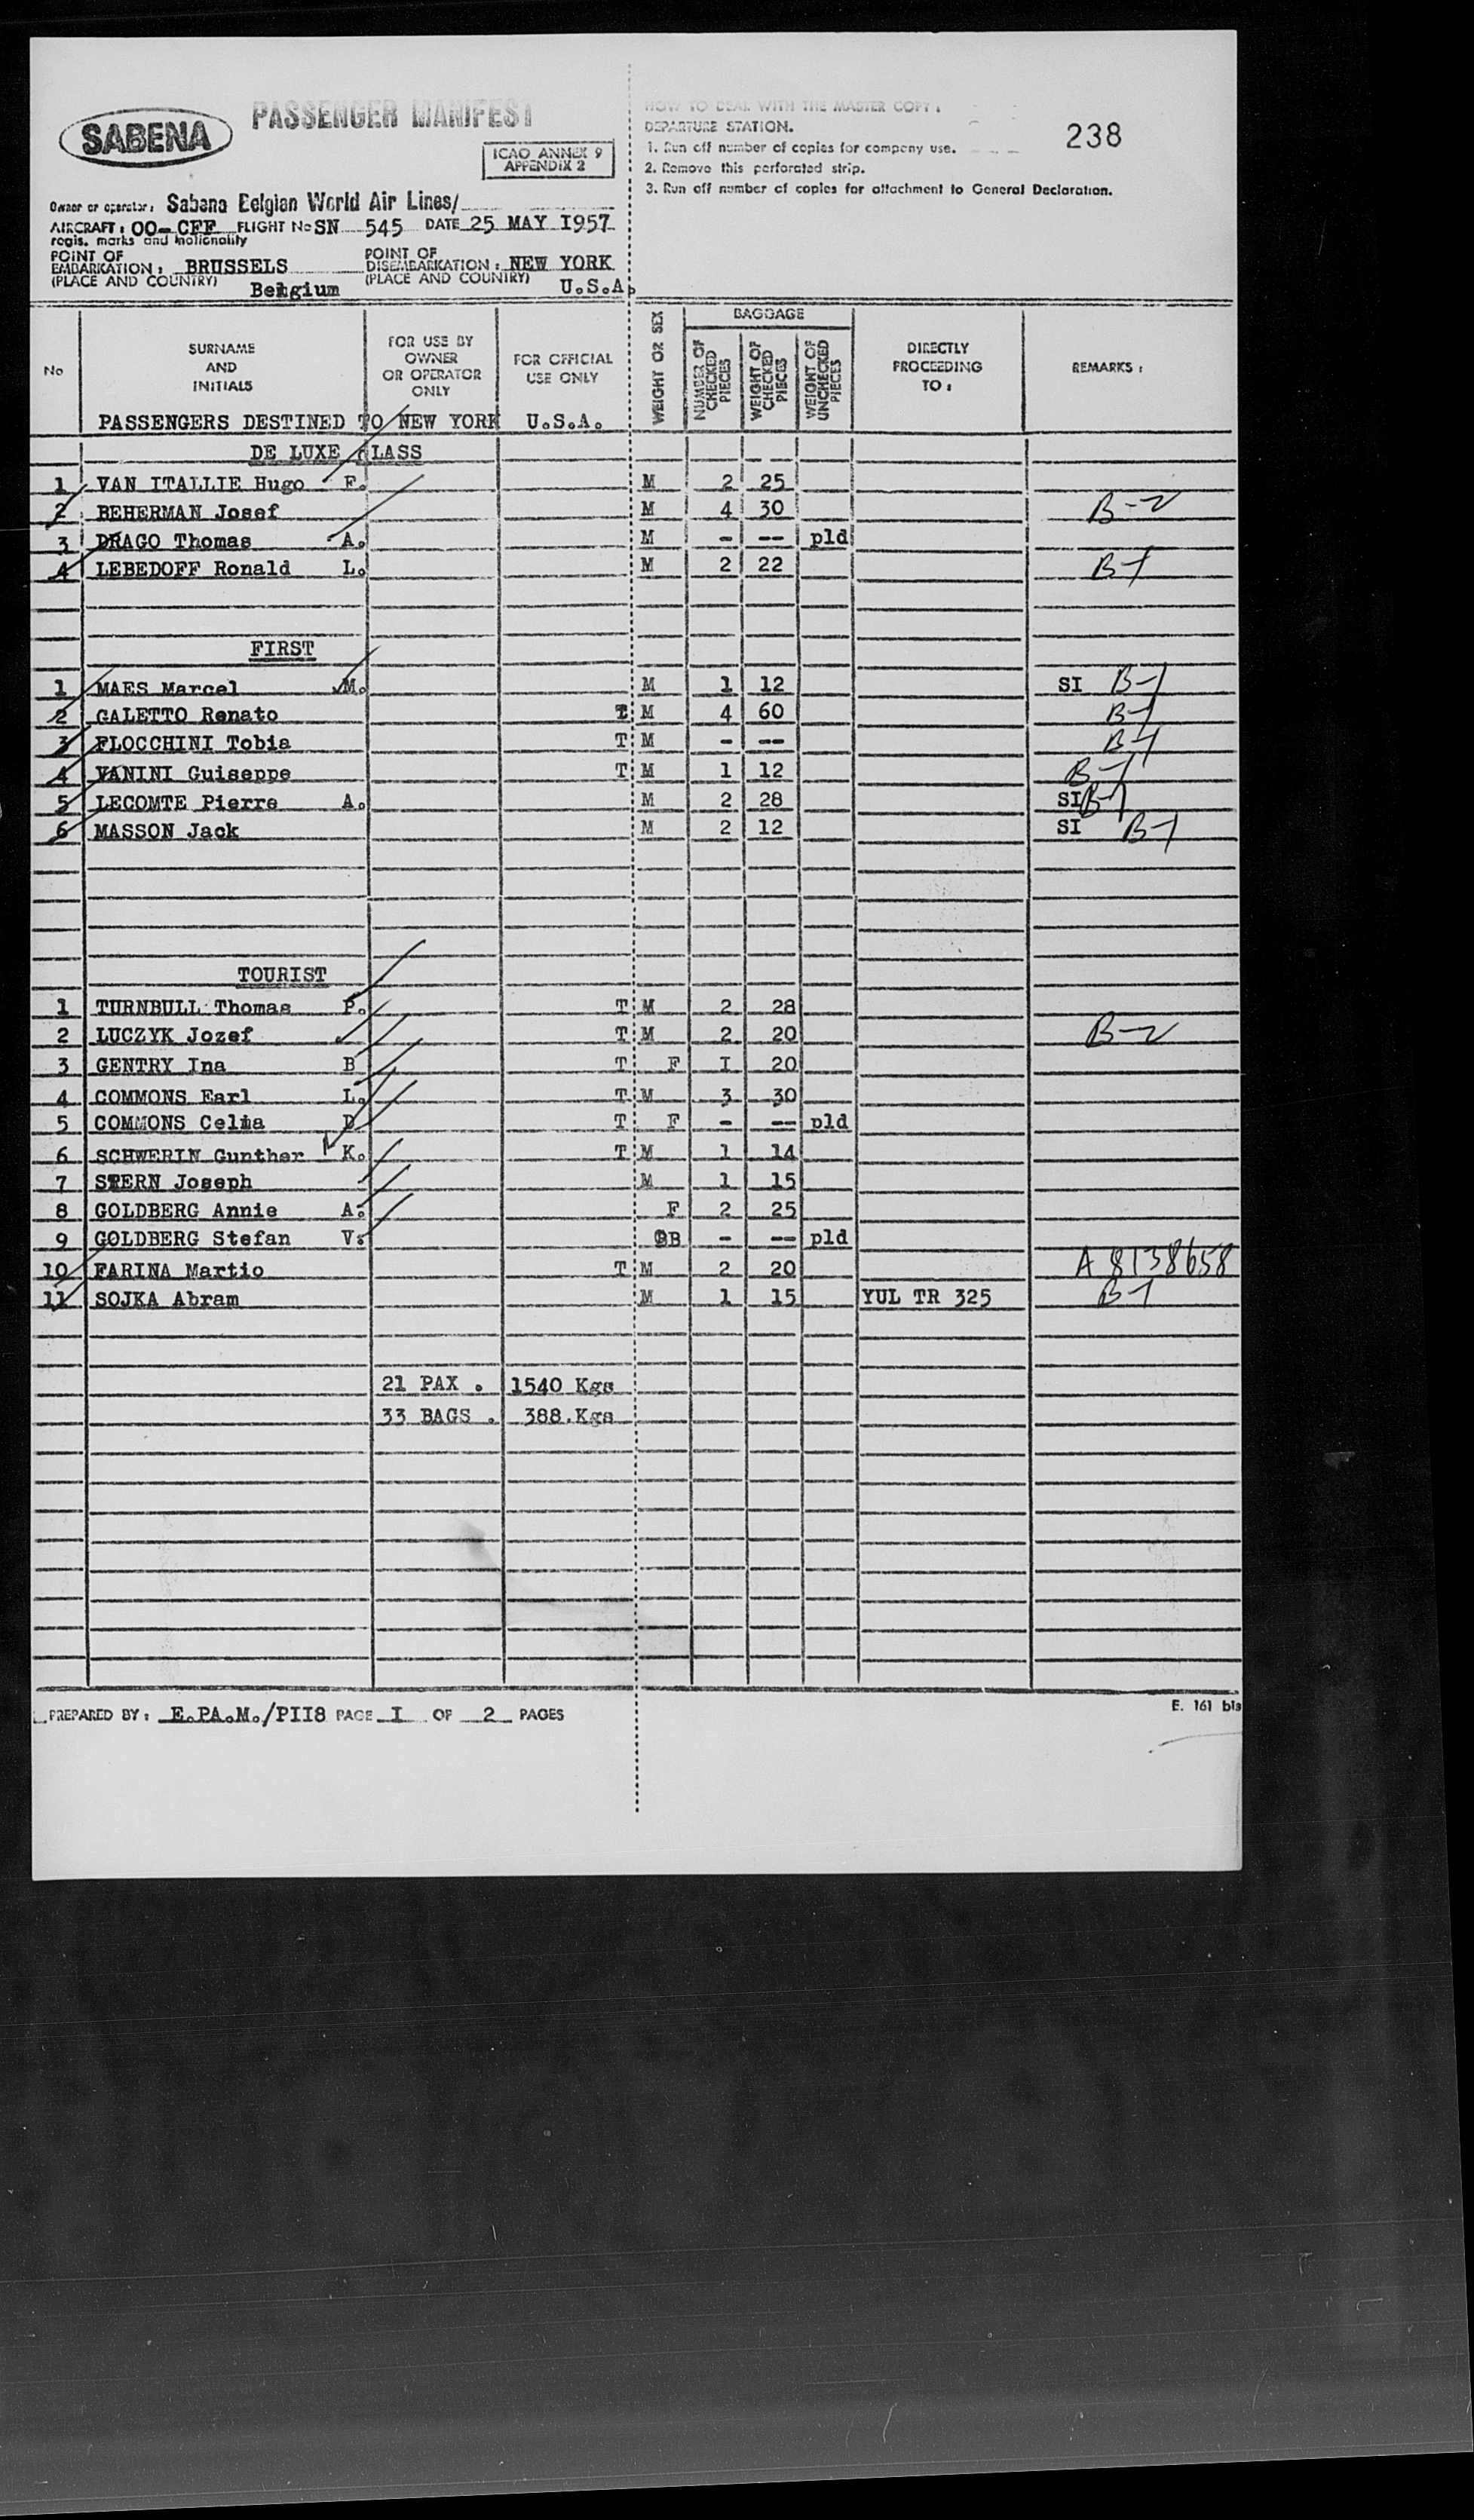 SABENA
PASSENGER MANIFEST
ICAO ANNEX 9
APPENDIX 2
HOW TO DEAL WITH THE MASTER COPY :
DEPARTURE STATION.
1. Run off number of copies for company use.
2. Remove this perforated strip.
3. Run off number of copies for attachment to General Declaration.
238
Owner or operator: Sabena Belgian World Air Lines/
AIRCRAFT : OO-CFF FLIGHT No SN 545 DATE 25 MAY 1957
regis. marks and nationality
POINT OF EMBARKATION : BRUSSELS POINT OF DISEMBARKATION : NEW YORK
(PLACE AND COUNTRY) Belgium (PLACE AND COUNTRY) U.S.A.
No SURNAME AND INITIALS FOR USE BY OWNER OR OPERATOR ONLY FOR OFFICIAL USE ONLY WEIGHT OR SEX BAGGAGE NUMBER OF CHECKED PIECES WEIGHT OF CHECKED PIECES WEIGHT OF UNCHECKED PIECES DIRECTLY PROCEEDING TO : REMARKS :
PASSENGERS DESTINED TO NEW YORK U.S.A.
DE LUXE CLASS
1 VAN ITALLIE Hugo F. M 2 25
2 BEHERMAN Josef M 4 30 B-2
3 DRAGO Thomas A. M - -- pld
4 LEBEDOFF Ronald L. M 2 22 B-1
FIRST
1 MAES Marcel M. M 1 12 SI B-1
2 GALETTO Renato T M 4 60 B-1
3 FLOCCHINI Tobia T M - -- B-1
4 VANINI Guiseppe T M 1 12 B-1
5 LECOMTE Pierre A. M 2 28 SI B-1
6 MASSON Jack M 2 12 SI B-1
TOURIST
1 TURNBULL Thomas P. T M 2 28
2 LUCZYK Jozef T M 2 20 B-2
3 GENTRY Ina B T F I 20
4 COMMONS Earl L. T M 3 30
5 COMMONS Celia D. T F - -- pld
6 SCHWERIN Gunther K. T M 1 14
7 STERN Joseph M 1 15
8 GOLDBERG Annie A. F 2 25
9 GOLDBERG Stefan V. BB - -- pld
10 FARINA Martio T M 2 20 A 8138658
11 SOJKA Abram M 1 15 YUL TR 325 B-1
21 PAX . 1540 Kgs
33 BAGS . 388.Kgs
PREPARED BY : E.PA.M./PII8 PAGE I OF 2 PAGES
E. 161 bis